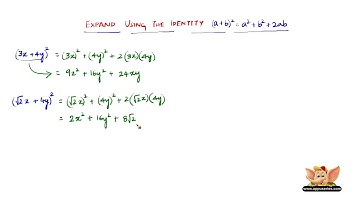 EXPAND USING THE IDENTITY (a+b)² = a² + b² + 2ab
(3x+4y)² = (3x)² + (4y)² + 2(3x)(4y)
= 9x² + 16y² + 24xy
(√2x + 4y)² = (√2x)² + (4y)² + 2(√2x)(4y)
= 2x² + 16y² + 8√2
www.appuseries.com